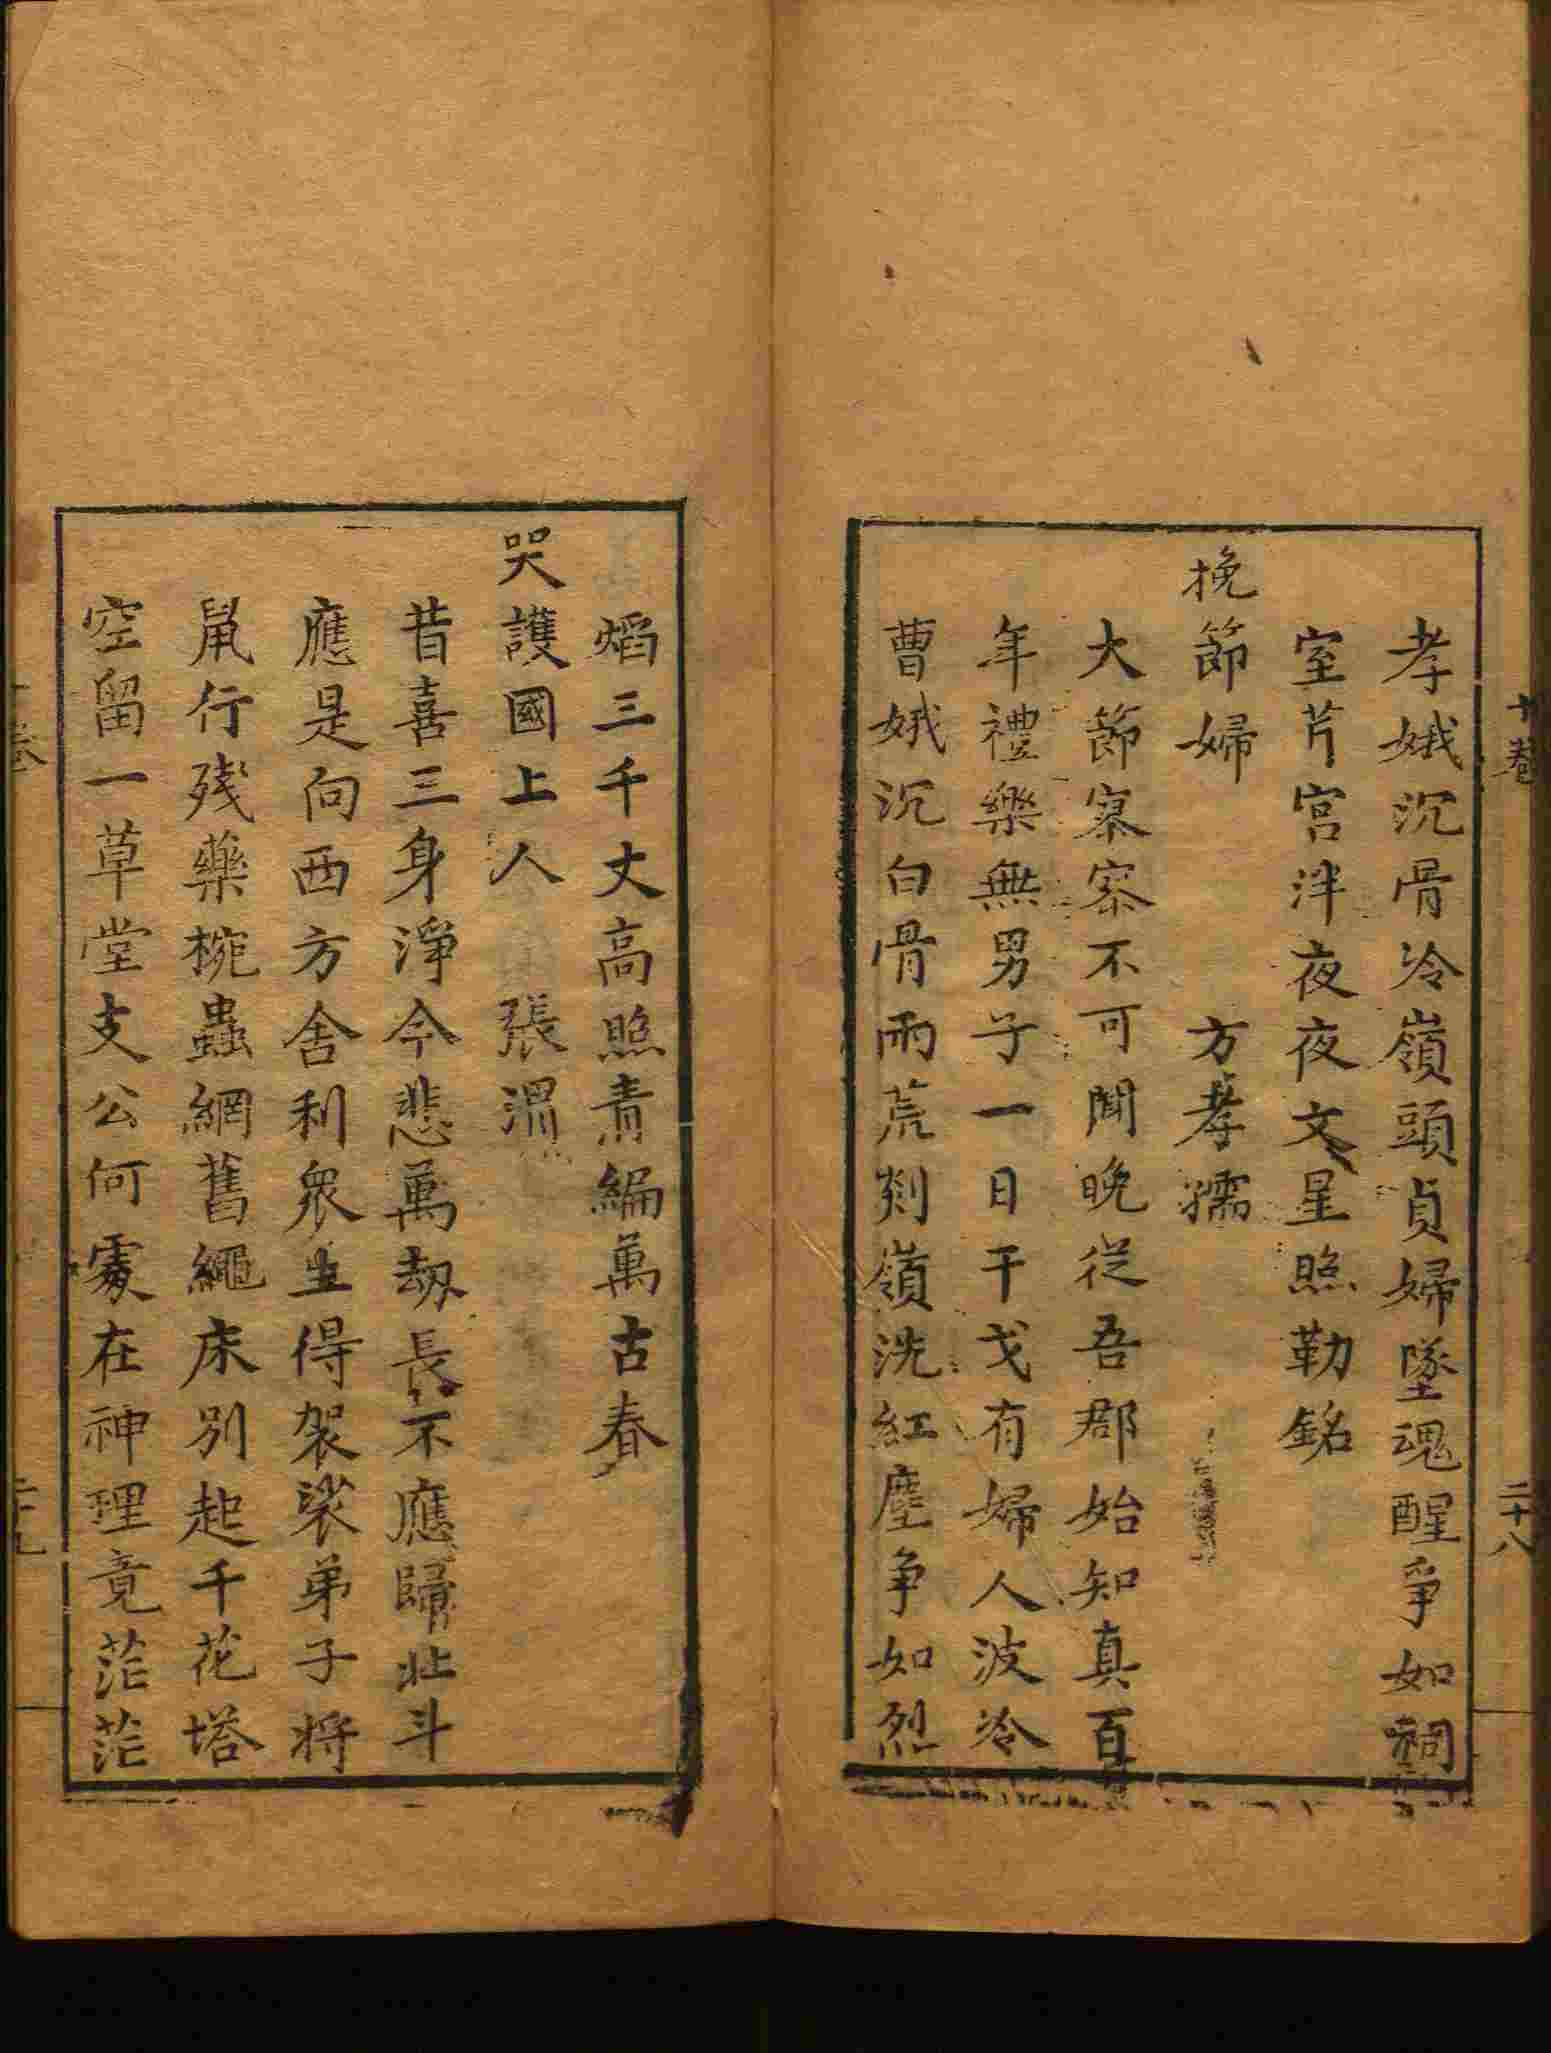 十卷
二十八
孝娥沉骨冷嶺頭貞婦墜魂醒爭如祠
室芹宮泮夜夜文星照勒銘
挽節婦 方孝孺
大節寥寥不可聞晚從吾郡始知真百
年禮樂無男子一日干戈有婦人波冷
曹娥沉白骨雨荒剡嶺洗紅塵争如烈
熖三千丈高照青編萬古春
哭護國上人 張渭
昔喜三身淨今悲萬劫長不應歸北斗
應是向西方舍利衆生得袈裟弟子將
鼠行殘藥椀蟲網舊繩床別起千花塔
空留一草堂支公何處在神理竟茫茫
二十九